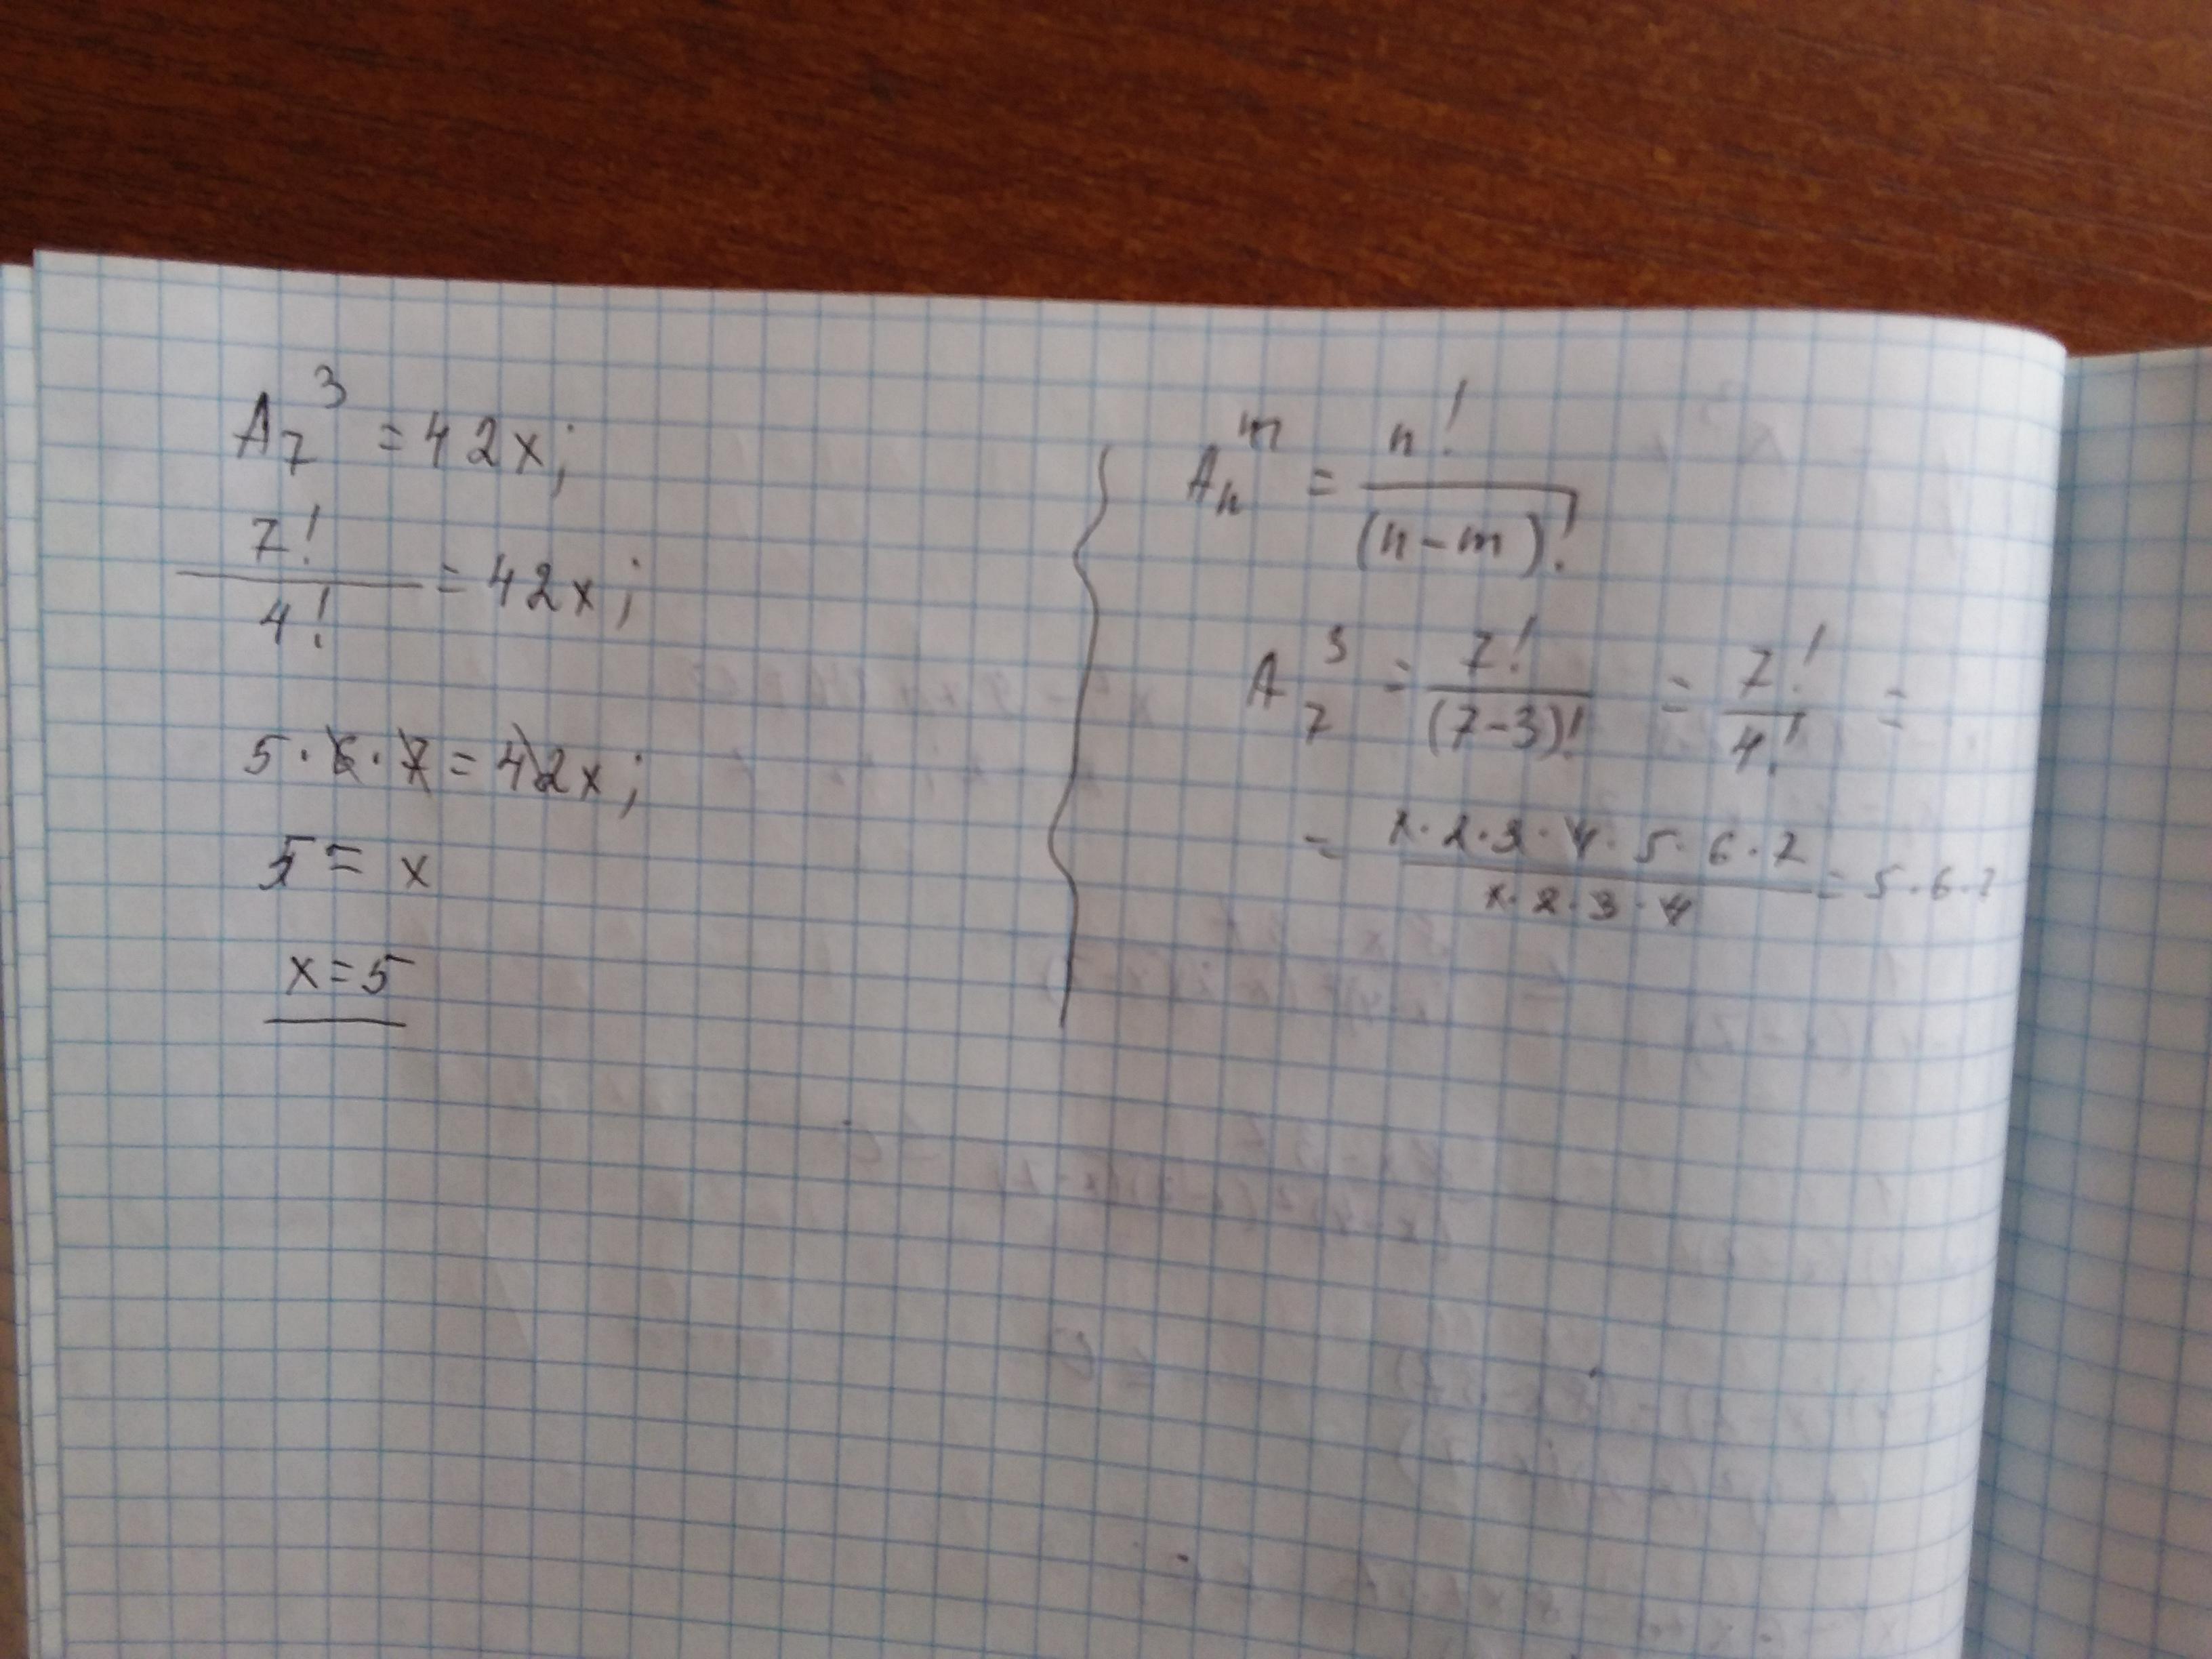 A₇³ = 42x;
7!/4! = 42x;
5·6·7 = 42x;
5 = x
x = 5
Aₙᵐ = n!/(n-m)!
A₇³ = 7!/(7-3)! = 7!/4! =
= 1·2·3·4·5·6·7/1·2·3·4 = 5·6·7